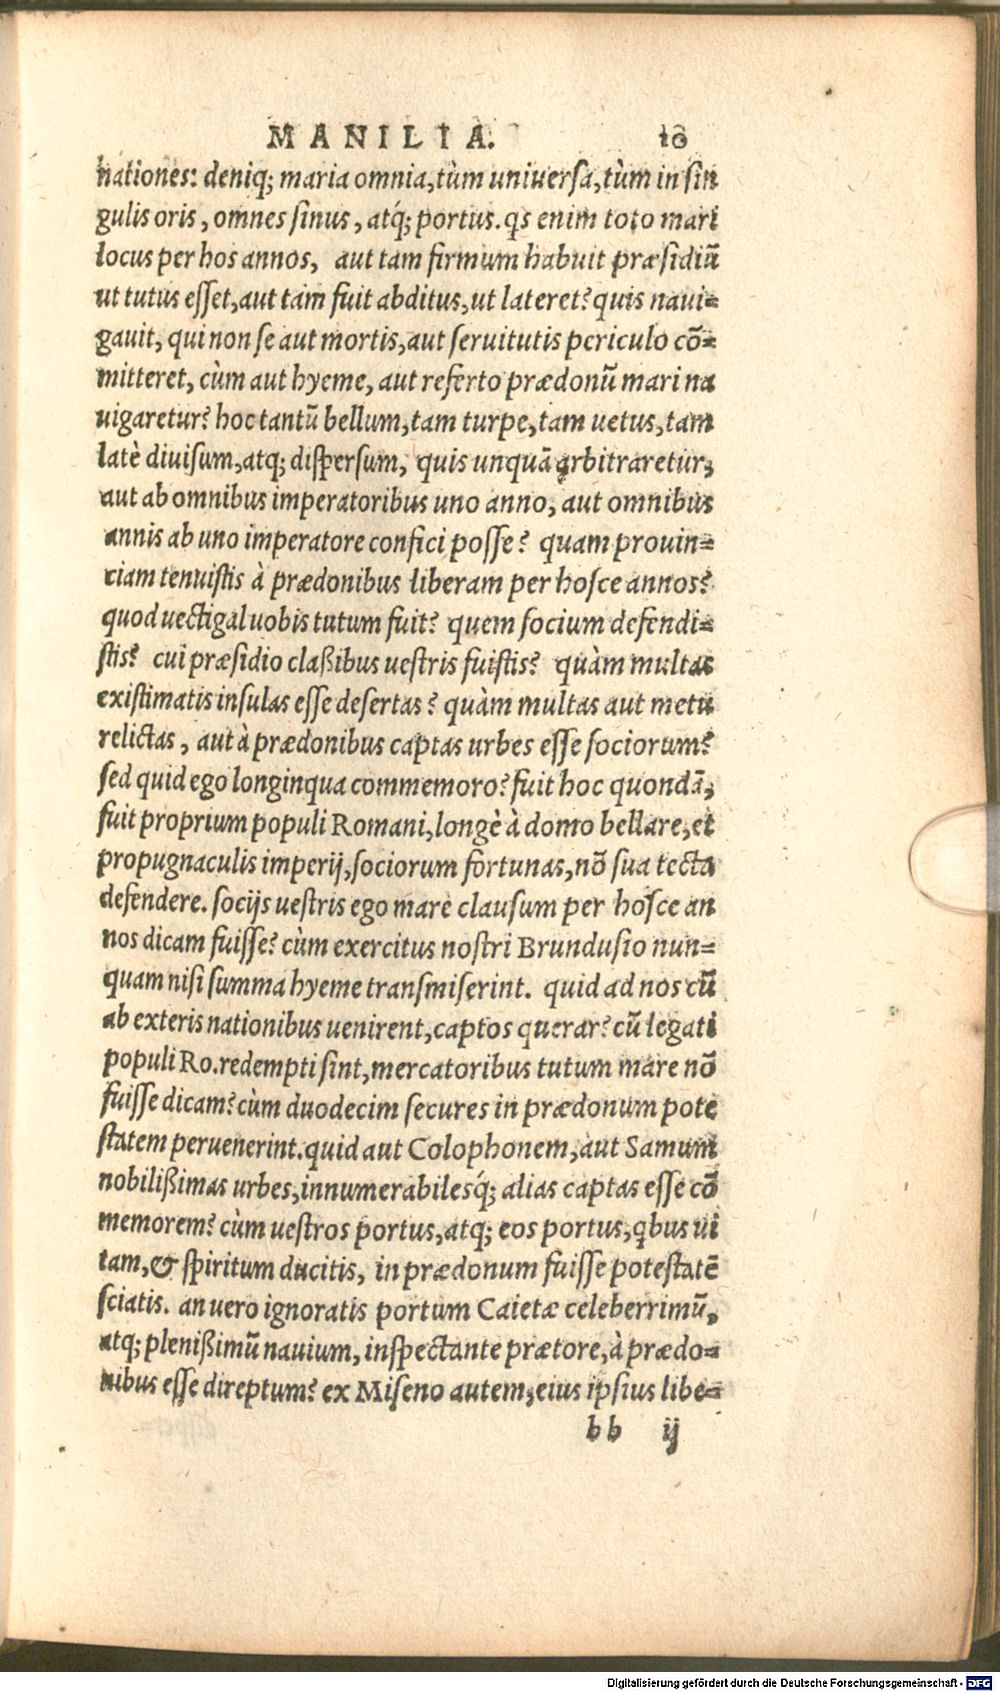 MANILIA. 10
nationes: deniq; maria omnia, tùm universa, tùm in sin
gulis oris, omnes sinus, atq́; portus. qs enim toto mari
locus per hos annos, aut tam firmum habuit præsidiũ
ut tutus esset, aut tam fuit abditus, ut lateret? quis naui=
gauit, qui non se aut mortis, aut seruitutis periculo cõ=
mitteret, cùm aut hyeme, aut referto prædonũ mari na
uigaretur? hoc tantũ bellum, tam turpe, tam uetus, tam
latè diuisum, atq; dispersum, quis unquã arbitraretur,
aut ab omnibus imperatoribus uno anno, aut omnibus
annis ab uno imperatore confici posse? quam prouin=
ciam tenuistis à prædonibus liberam per hosce annos?
quod uectigal uobis tutum fuit? quem socium defendi=
stis? cui præsidio claßibus uestris fuistis? quàm multas
existimatis insulas esse desertas? quàm multas aut metu
relictas, aut à prædonibus captas urbes esse sociorum?
sed quid ego longinqua commemoro? fuit hoc quondã,
fuit proprium populi Romani, longè à domo bellare, et
propugnaculis imperij, sociorum fortunas, nõ sua tecta
defendere. socijs uestris ego mare clausum per hosce an
nos dicam fuisse? cùm exercitus nostri Brundusio nun=
quam nisi summa hyeme transmiserint. quid ad nos cũ
ab exteris nationibus uenirent, captos querar? cũ legati
populi Ro. redempti sint, mercatoribus tutum mare nõ
fuisse dicam? cùm duodecim secures in prædonum pote
statem peruenerint. quid aut Colophonem, aut Samum
nobilißimas urbes, innumerabilesq́; alias captas esse cõ
memorem? cùm uestros portus, atq; eos portus, qbus ui
tam, & spiritum ducitis, in prædonum fuisse potestatẽ
sciatis. an uero ignoratis portum Caietæ celeberrimũ,
atq; plenißimũ nauium, inspectante prætore, à prædo=
nibus esse direptum? ex Miseno autem, eius ipsius libe=
bb ij
Digitalisierung gefördert durch die Deutsche Forschungsgemeinschaft - DFG